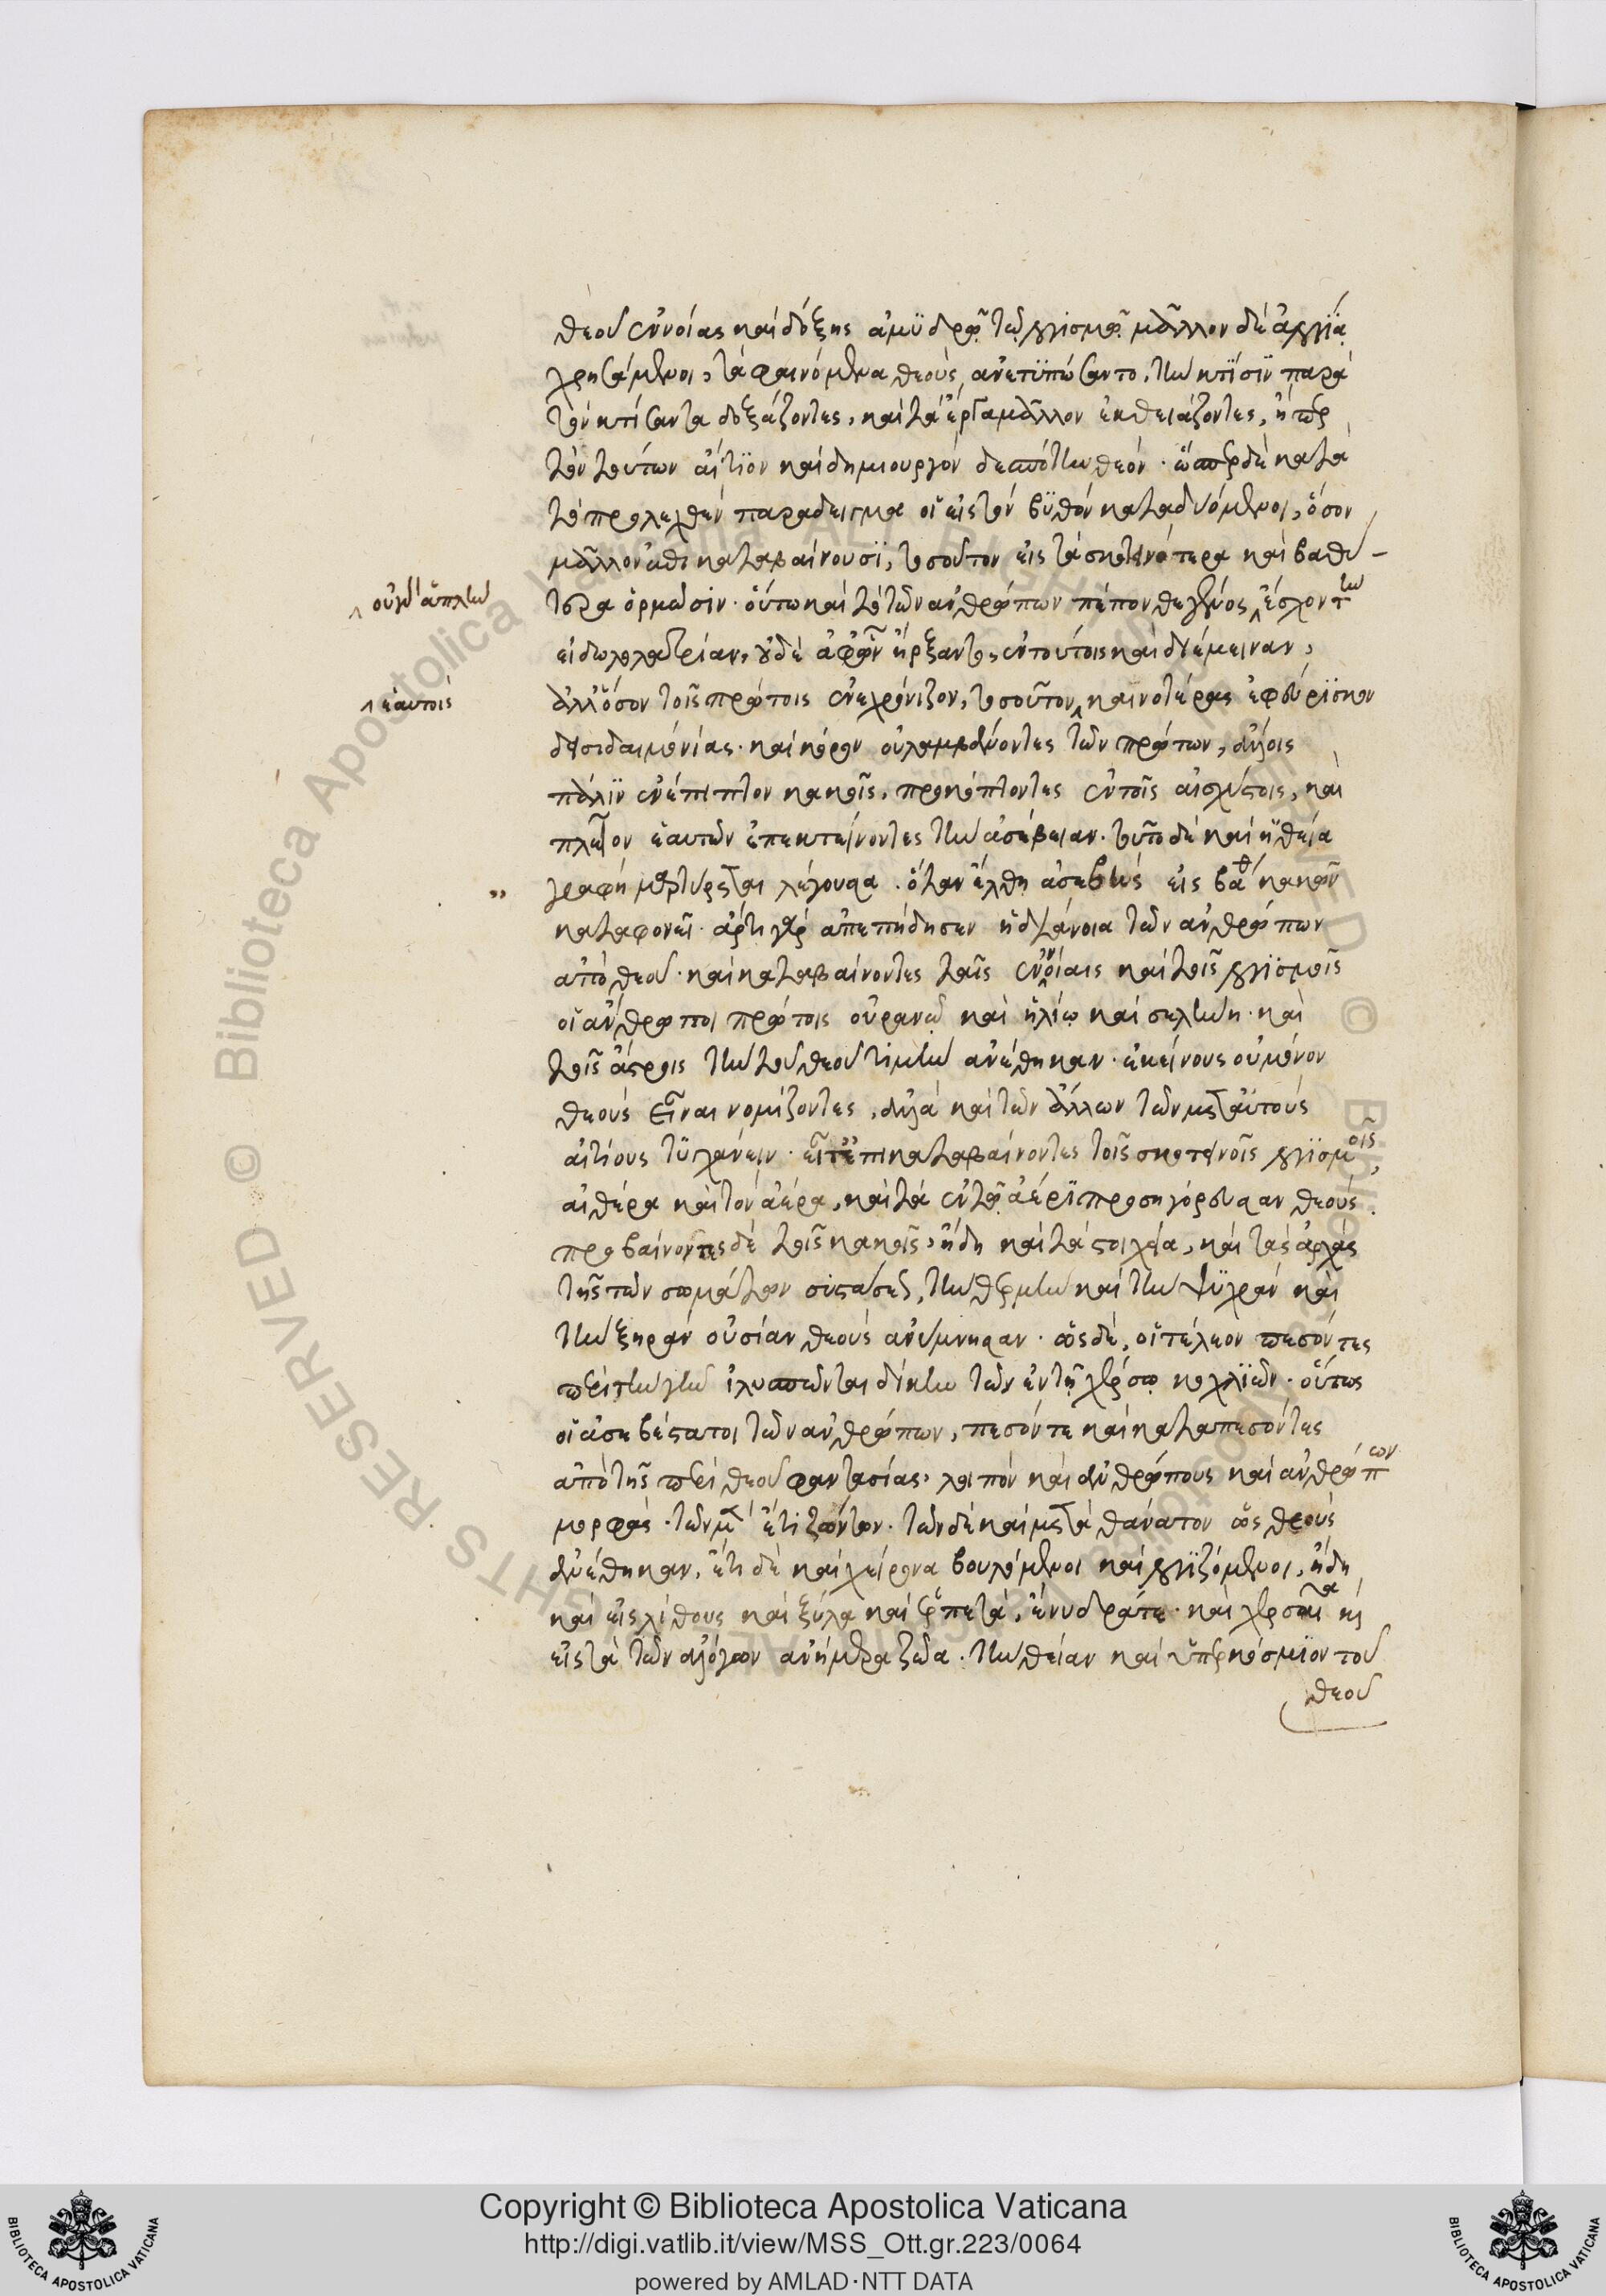 θεοῦ ἐννοίας καὶ δόξης ἀμυδρῷ τῷ λογισμῷ μᾶλλον δὲ ἀλογίᾳ
χρησάμενοι, τὰ φαινόμενα θεοὺς ἀνετυπώσαντο, τὴν κτίσιν παρὰ
τὸν κτίσαντα δοξάζοντες, καὶ τὰ ἔργα μᾶλλον ἐκθειάζοντες, ἤπερ
τὸν τούτων αἴτιον καὶ δημιουργὸν δεσπότην θεόν· ὥσπερ δὲ κατὰ
τὸ προλεχθὲν παράδειγμα οἱ εἰς τὸν βυθὸν καταδυόμενοι, ὅσον
μᾶλλον ἐπικαταβαίνουσι, τοσοῦτον εἰς τὰ σκοτεινότερα καὶ βαθύ-
τερα ὁρμῶσιν· οὕτω καὶ τὸ τῶν ἀνθρώπων πέπονθε γένος ‸ ἔσχον τὴν
‸ οὐγδ' ἁπλῆν
εἰδωλολατρίαν, οὐδὲ ἀφ' ὧν ἤρξαντο, ἐν τούτοις καὶ διέμειναν,
ἀλλ' ὅσον τοῖς πρώτοις ἐνεχρόνιζον, τοσοῦτον ‸ καινοτέρας ἐφεύρισκον
‸ ἑαυτοῖς
δεισιδαιμονίας· καὶ κόρον οὐ λαμβάνοντες τῶν πρώτων, ἄλλοις
πάλιν ἐνέπιπτον κακοῖς, προκόπτοντες ἐν τοῖς αἰσχίστοις, καὶ
πλεῖον ἑαυτῶν ἐπεκτείνοντες τὴν ἀσέβειαν. τοῦτο δὲ καὶ ἡ θεία
„ γραφὴ μαρτύρεται λέγουσα· ὅταν ἔλθῃ ἀσεβὴς εἰς βάθ κακῶν
καταφρονεῖ· ἄρτι γὰρ ἀπεπήδησεν ἡ διάνοια τῶν ἀνθρώπων
ἀπὸ θεοῦ· καὶ καταβαίνοντες ταῖς ἐννοίαις καὶ τοῖς λογισμοῖς
οἱ ἄνθρωποι πρώτοις οὐρανῷ καὶ ἡλίῳ καὶ σελήνῃ· καὶ
τοῖς ἄστροις τὴν τοῦ θεοῦ τιμὴν ἀνέθηκαν· ἐκείνους οὐ μόνον
θεοὺς εἶναι νομίζοντες, ἀλλὰ καὶ τῶν ἄλλων τῶν μετ' αὐτοὺς
αἰτίους τυγχάνειν· εἶτ' ἐπικαταβαίνοντες τοῖς σκοτεινοῖς λογισμοῖς,
αἰθέρα καὶ τὸν ἀέρα, καὶ τὰ ἐν τῷ ἀέρι προσηγόρευσαν θεούς.
προβαίνοντες δὲ τοῖς κακοῖς, ἤδη καὶ τὰ στοιχεῖα, καὶ τὰς ἀρχὰς
τῆς τῶν σωμάτων συστάσεως, τὴν θερμὴν καὶ τὴν ψυχρὰν καὶ
τὴν ξηρὰν οὐσίαν θεοὺς ἀνύμνησαν· ὡς δὲ, οἱ τέλεον πεσόντες
περὶ τὴν γῆν ἰλυσπῶνται δίκην τῶν ἐν τῇ χέρσῳ κοχλιῶν· οὕτως
οἱ ἀσεβέστατοι τῶν ἀνθρώπων, πεσόντε καὶ καταπεσόντες
ἀπὸ τῆς περὶ θεοῦ φαντασίας, λοιπὸν καὶ ἀνθρώπους καὶ ἀνθρώπων
μορφὰς· τῶν μὲν ἔτι ζώντων· τῶν δὲ καὶ μετὰ θάνατον ὡς θεοὺς
ἀνέθηκαν, ἔτι δὲ καὶ χείρονα βουλόμενοι καὶ λογιζόμενοι, ἤδη
καὶ εἰς λίθους καὶ ξύλα καὶ ἑρπετὰ, ἔνυδρά τε· καὶ χερσαῖα καὶ
εἰς τὰ τῶν ἀλόγων ἀνήμερα ζῶα· τὴν θείαν καὶ ὑπερκόσμιον τοῦ
θεοῦ
Copyright © Biblioteca Apostolica Vaticana
http://digi.vatlib.it/view/MSS_Ott.gr.223/0064
powered by AMLAD·NTT DATA